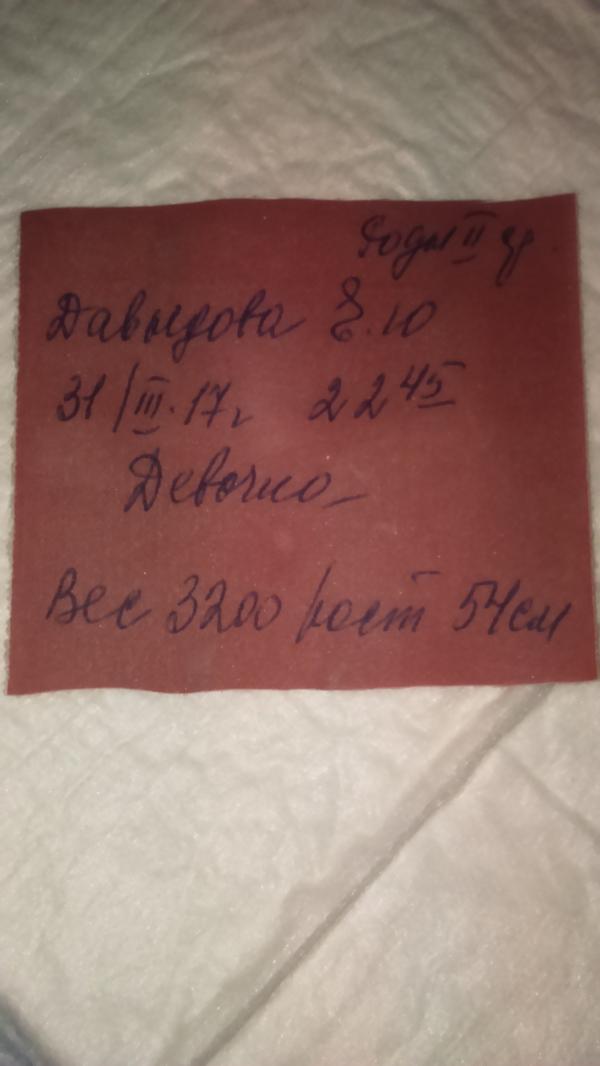 Роды II
Давыдова Е.Ю
31/III.17г 22 45
Девочка
Вес 3200 рост 54см